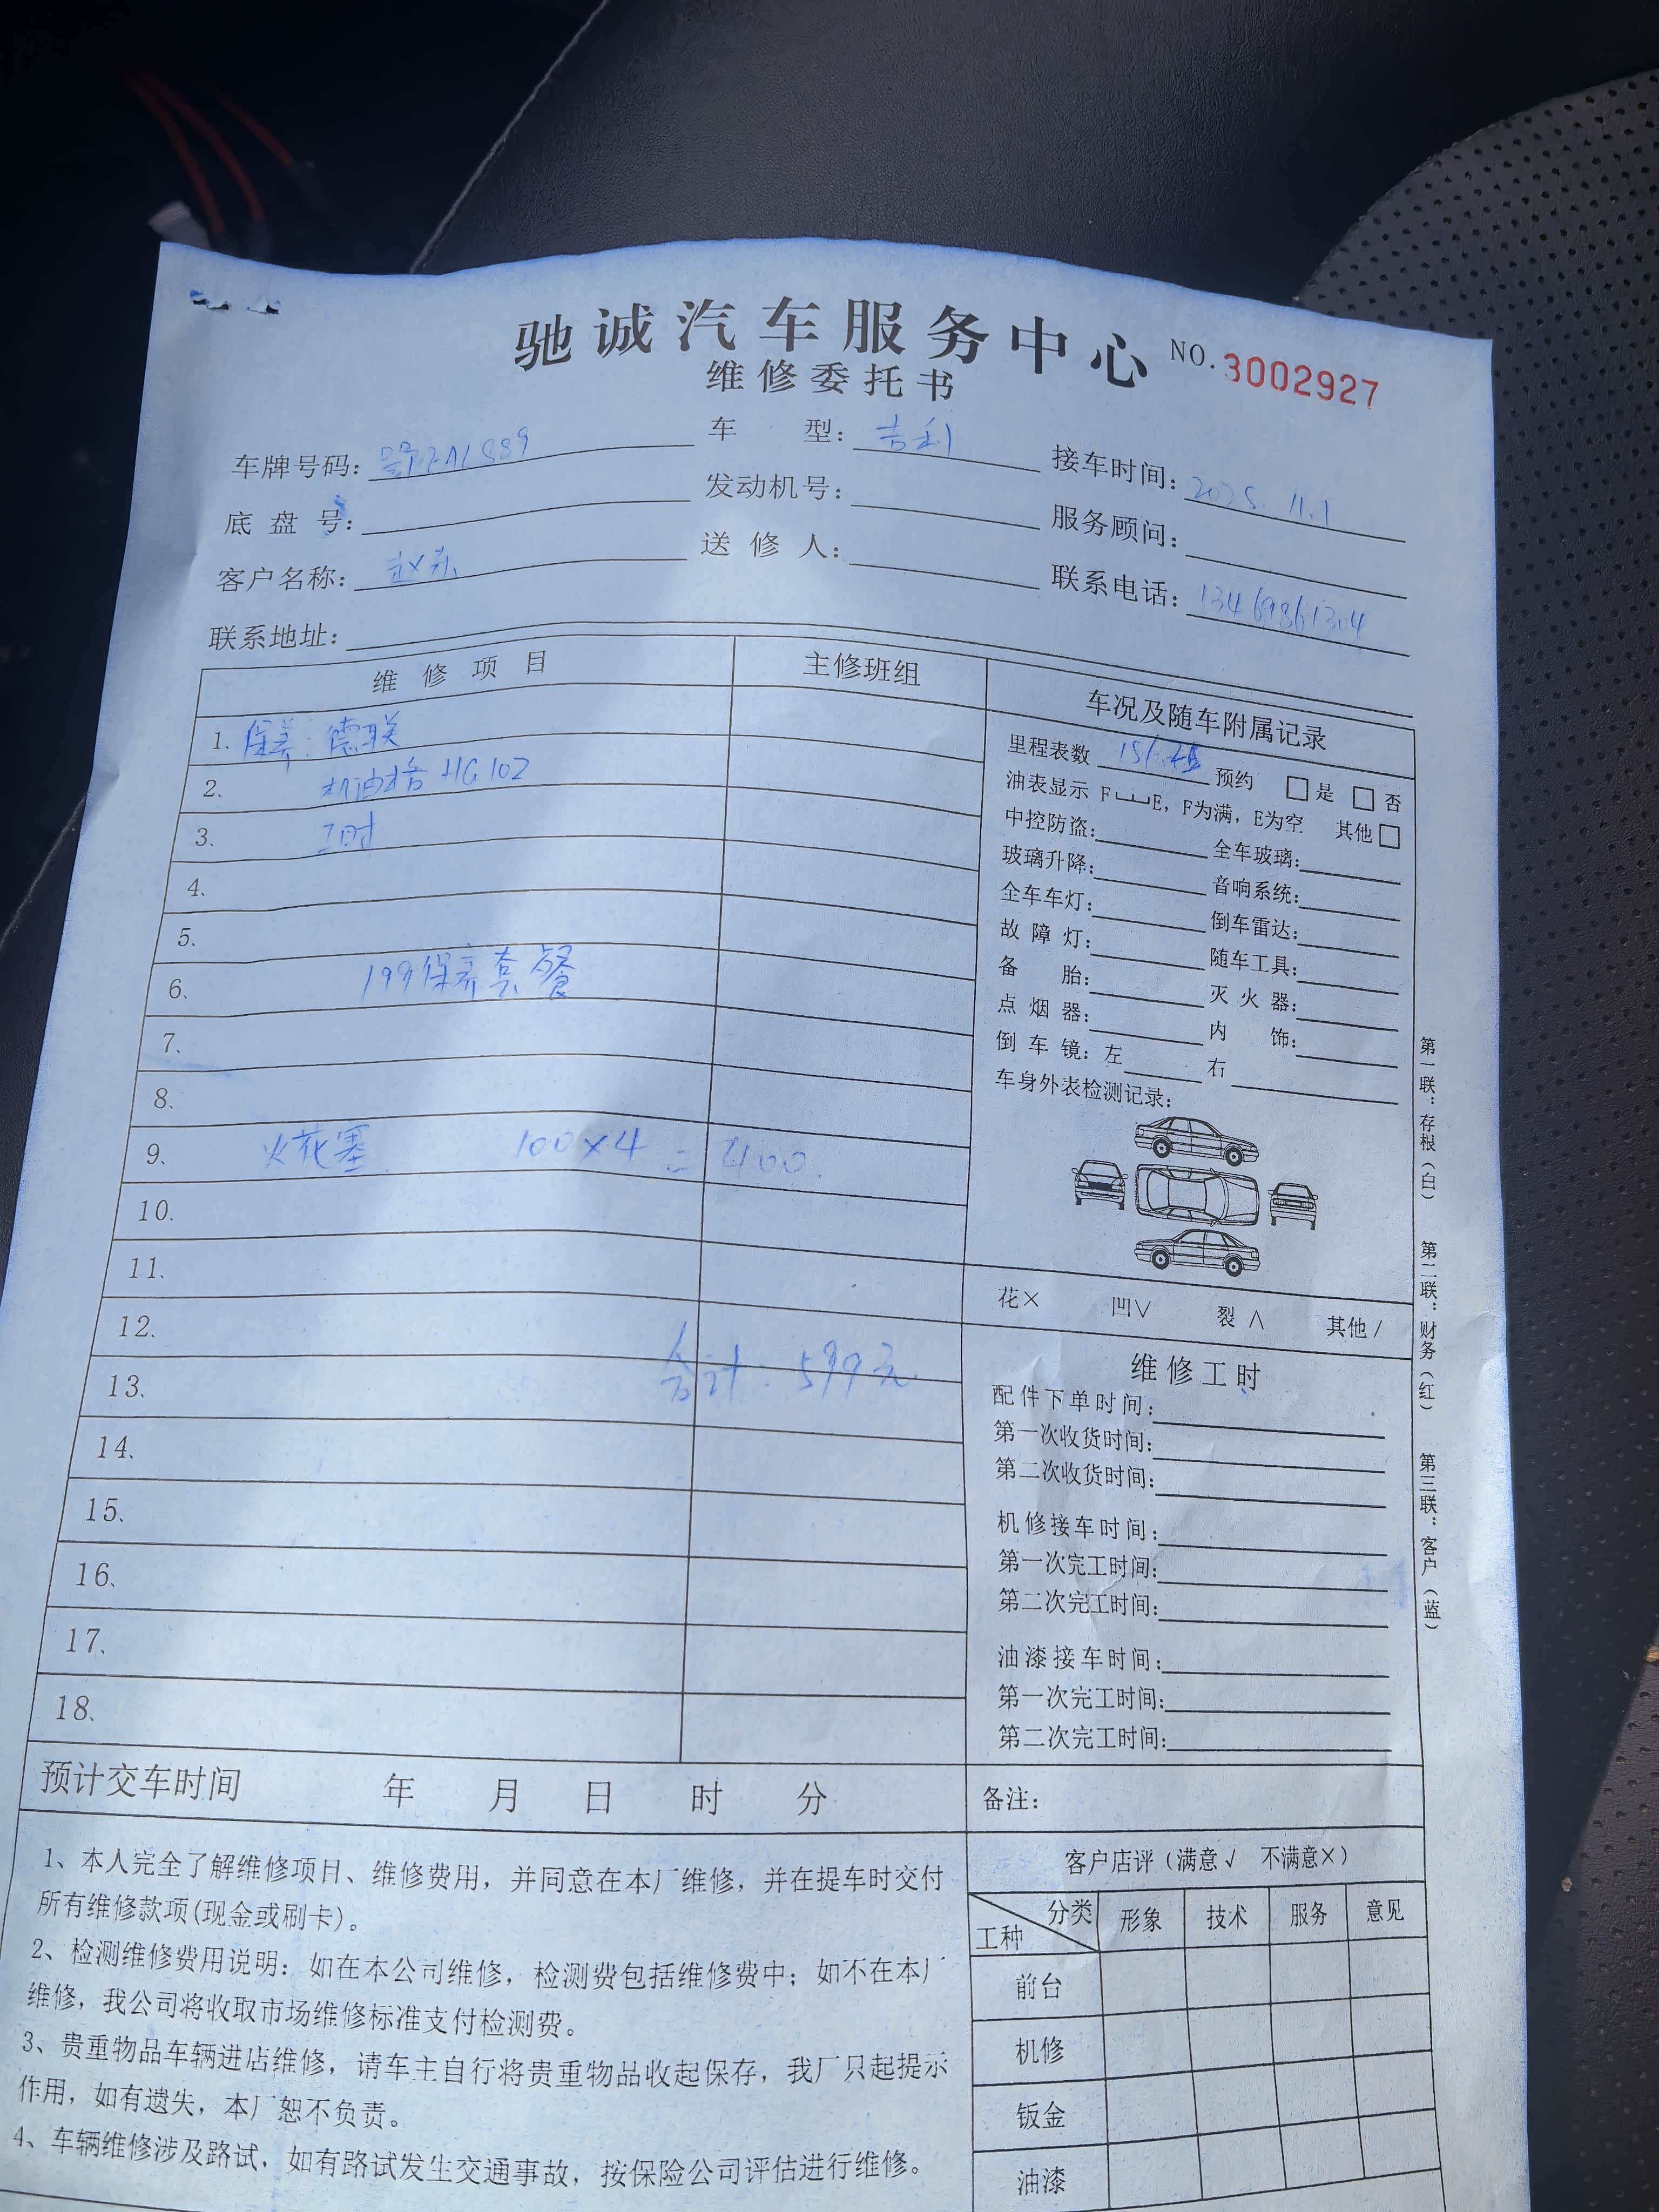 驰诚汽车服务中心 NO.3002927
维修委托书
车牌号码: 车 型: 吉利 接车时间: 2025.11.1
底 盘 号: 发动机号: 服务顾问:
客户名称: 赵东 送 修 人: 联系电话:
联系地址:
维 修 项 目 主修班组 车况及随车附属记录
1、保养: 德联
2、机油格 HG102
3、工时
4、
5、
6、199保养套餐
7、
8、
9、火花塞 100×4 = 400
10、
11、
12、
合计: 599元
13、
14、
15、
16、
17、
18、
里程表数 预约 □是 □否
油表显示 F E, F为满, E为空 其他□
中控防盗: 全车玻璃:
玻璃升降: 音响系统:
全车车灯: 倒车雷达:
故 障 灯: 随车工具:
备 胎: 灭 火 器:
点 烟 器: 内 饰:
倒 车 镜: 左 右
车身外表检测记录:
花× 凹∨ 裂∧ 其他/
维修工时
配件下单时间:
第一次收货时间:
第二次收货时间:
机修接车时间:
第一次完工时间:
第二次完工时间:
油漆接车时间:
第一次完工时间:
第二次完工时间:
预计交车时间 年 月 日 时 分
备注:
1、本人完全了解维修项目、维修费用, 并同意在本厂维修, 并在提车时交付
所有维修款项(现金或刷卡)。
2、检测维修费用说明: 如在本公司维修, 检测费包括维修费中; 如不在本厂
维修, 我公司将收取市场维修标准支付检测费。
3、贵重物品车辆进店维修, 请车主自行将贵重物品收起保存, 我厂只起提示
作用, 如有遗失, 本厂恕不负责。
4、车辆维修涉及路试, 如有路试发生交通事故, 按保险公司评估进行维修。
客户店评 (满意√ 不满意×)
分类 工种 形象 技术 服务 意见
前台
机修
钣金
油漆
第一联: 存根 (白) 第二联: 财务 (红) 第三联: 客户 (蓝)